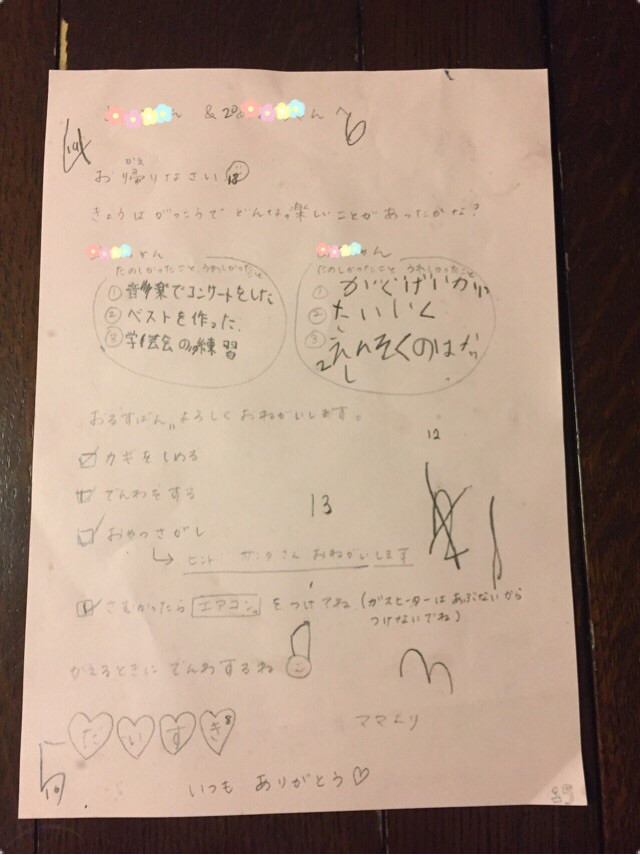 ん & ん へ
お帰りなさい
かえ
きょうは がっこうで どんな 楽しいことが あったかな?
ゃん
たのしかったこと うれしかったこと
① 音楽でコンサートをした
② ベストを作った
③ 学芸会の練習
ゃん
たのしかったこと うれしかったこと
①
② たいいく
③ えんそくのはなし
おるすばん よろしく おねがいします。
カギをしめる
でんわをする
おやつさがし
→ ヒント: サンタさん おねがいします
さむかったら エアコン をつけてね (ガスヒーターは あぶないから
つけないでね)
かえるときに でんわするね
だいすき
ママより
いつも ありがとう♡
12
13